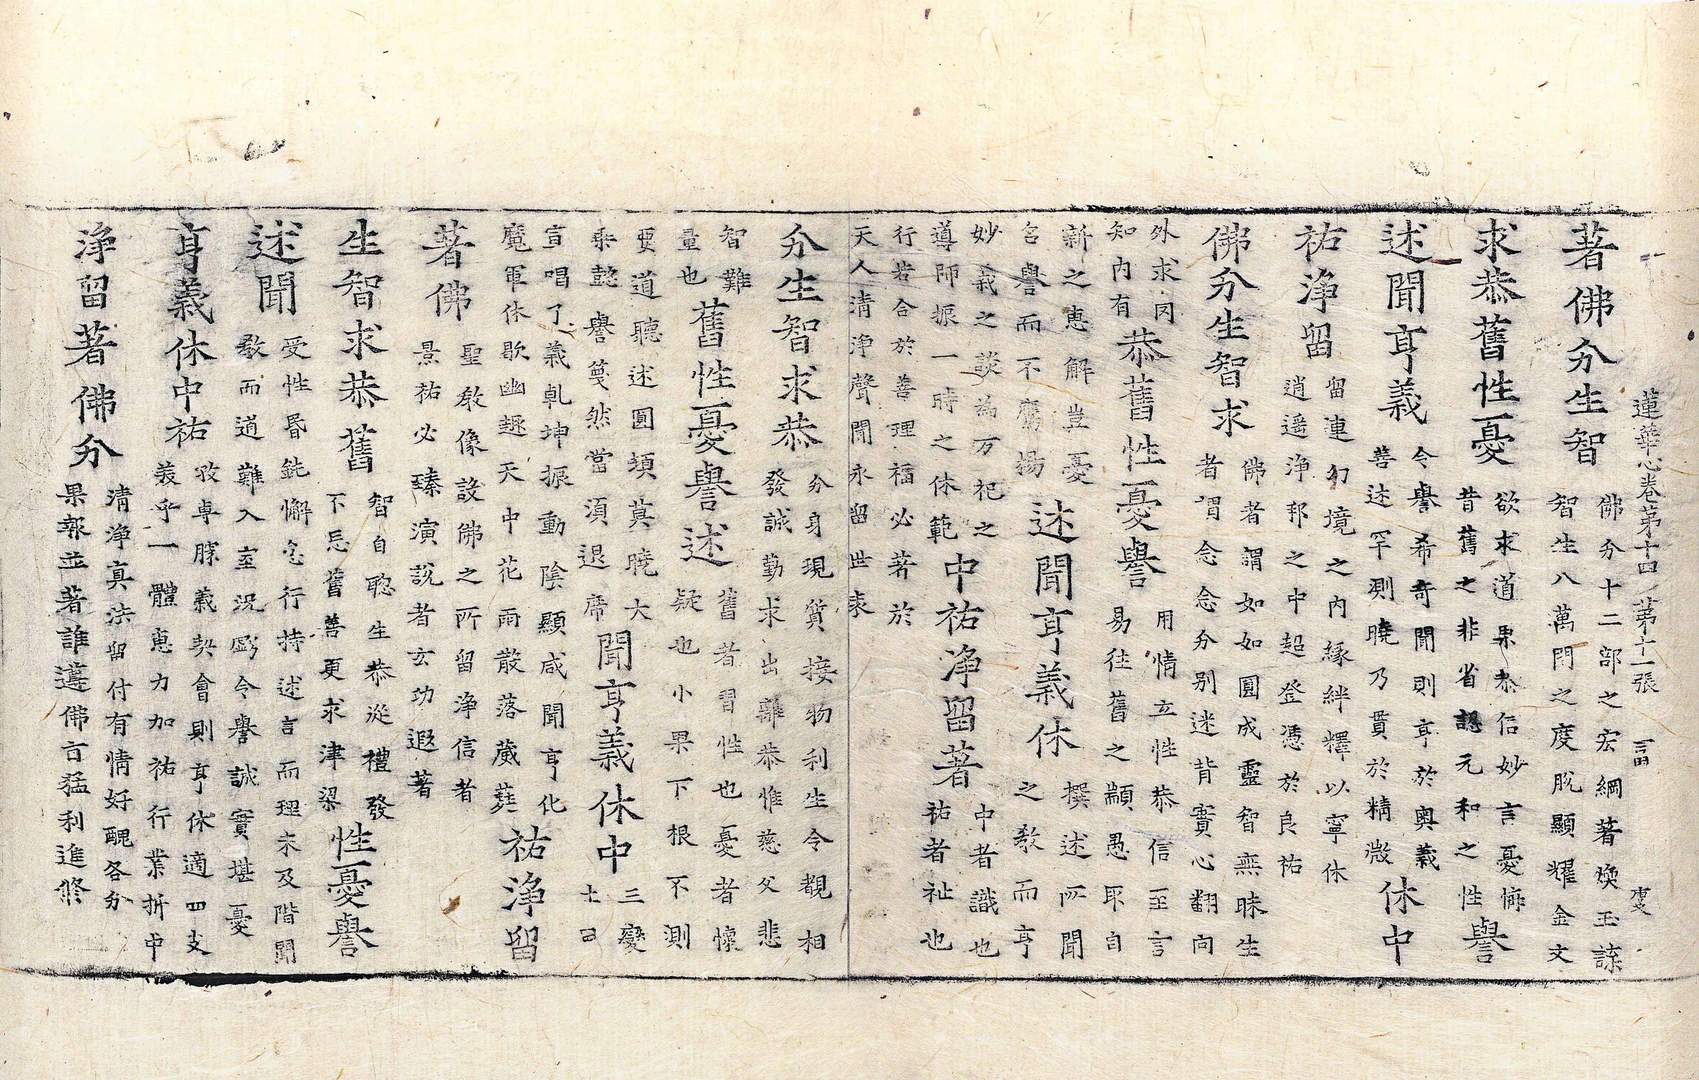 蓮華心卷第十四 第十一張 言
著佛分生智
佛分十二部之宏綱著煥玉諜
智生八萬門之度脫顯耀金文
求恭舊性憂
欲求道果恭信妙言憂慚
昔舊之非省認元和之性
譽
述聞亨義
令譽希奇聞則亨於奧義
善述罕測曉乃貫於精微
休中
祐淨留
留連幻境之內緣絆釋以寧休
逍遥淨邦之中超登憑於良祐
佛分生智求
佛者謂如如圓成靈智無昧生
者謂念念分別迷背實心翻向
外求因
知內有
恭舊性憂譽
用情立性恭信至言
易往舊之顓愚取自
新之惠解豈憂
名譽而不鷹揚
述聞亨義休
撰述所聞
之教而亨
妙義之談為万祀之
導師振一時之休範
中祐淨留著
中者識也
祐者祉也
行若合於善理福必著於
天人清淨聲聞永留世表
分生智求恭
分身現質接物利生令覩相
發誠勤求出離恭惟慈父悲
智難
量也
舊性憂譽述
舊者習性也憂者懷
疑也小果下根不測
要道聽述圓頓莫曉大
乘懿譽篾然當須退席
聞亨義休中
三變
土田
宣唱了義乹坤振動陰顯咸聞亨化
魔軍休歇幽趣天中花雨散落葳蕤
祐淨留
著佛
聖啟像設佛之所留淨信者
景祐必臻演說者玄功遐著
生智求恭舊
智自聡生恭從禮發
不忘舊善更求津梁
性憂譽
述聞
受性昏鈍懈怠行持述言而理未及階聞
教而道難入室況彫令譽誠實堪憂
亨義休中祐
攷專勝義契會則亨休適四支
義乎一體惠力加祐行業折中
淨留著佛分
清淨真法留付有情好醜各分
果報並著誰遵佛言猛利進修